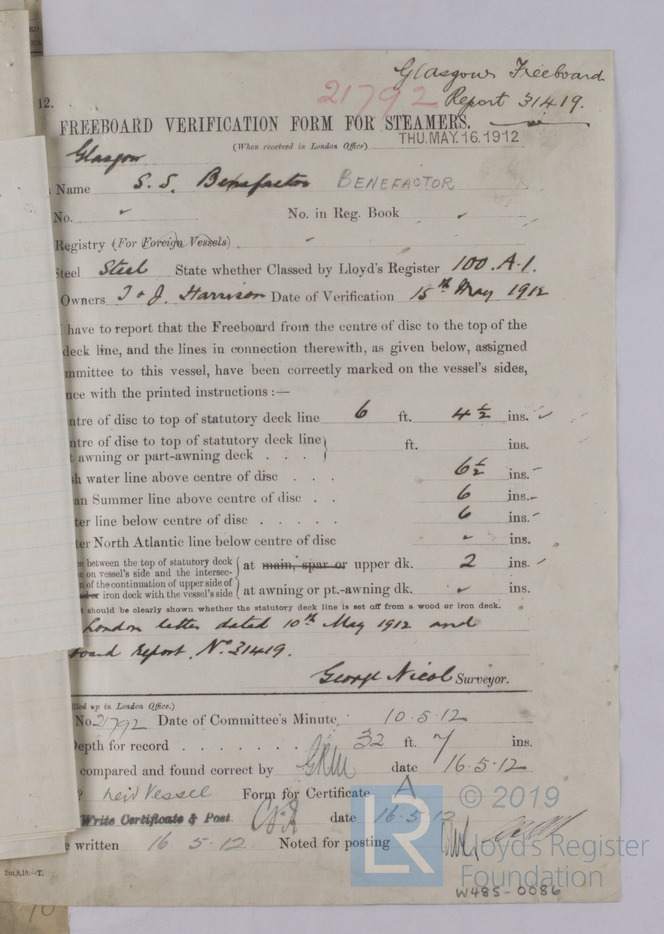 Glasgow Freeboard
21792 Report 31419.
12.
FREEBOARD VERIFICATION FORM FOR STEAMERS.
(When received in London Office) THU.MAY.16.1912
Glasgow
Name S.S. Benefactor BENEFACTOR
No. No. in Reg. Book
Registry (For Foreign Vessels)
Steel Steel State whether Classed by Lloyd's Register 100.A.1.
Owners T & J. Harrison Date of Verification 15th May 1912
have to report that the Freeboard from the centre of disc to the top of the
deck line, and the lines in connection therewith, as given below, assigned
mmittee to this vessel, have been correctly marked on the vessel's sides,
nce with the printed instructions :—
ntre of disc to top of statutory deck line 6 ft. 4½ ins.
ntre of disc to top of statutory deck line
awning or part-awning deck . . . ft. ins.
h water line above centre of disc . . 6½ ins.
an Summer line above centre of disc . . 6 ins.
ter line below centre of disc . . . . . 6 ins.
er North Atlantic line below centre of disc ins.
e between the top of statutory deck
e on vessel's side and the intersec-
n of the continuation of upper side of
iron deck with the vessel's side
at main, spar or upper dk. 2 ins.
at awning or pt.-awning dk. ins.
t should be clearly shown whether the statutory deck line is set off from a wood or iron deck.
London letter dated 10th May 1912 and
oard Report, No. 31419.
George Nicol Surveyor.
lled up in London Office.)
No. 21792 Date of Committee's Minute, 10.5.12
Depth for record . . . . . . . 32 ft. 7 ins.
compared and found correct by date 16.5.12
? Vessel Form for Certificate A
Write Certificate & Post date 16.5.12
e written 16.5.12 Noted for posting
2m,8,10.—T.
10
© 2019
LR
Lloyd's Register
Foundation
W485-0086